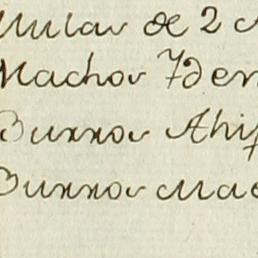 Mulas de 2 a
Machos Yden
Burros Ahij
Burros Mae